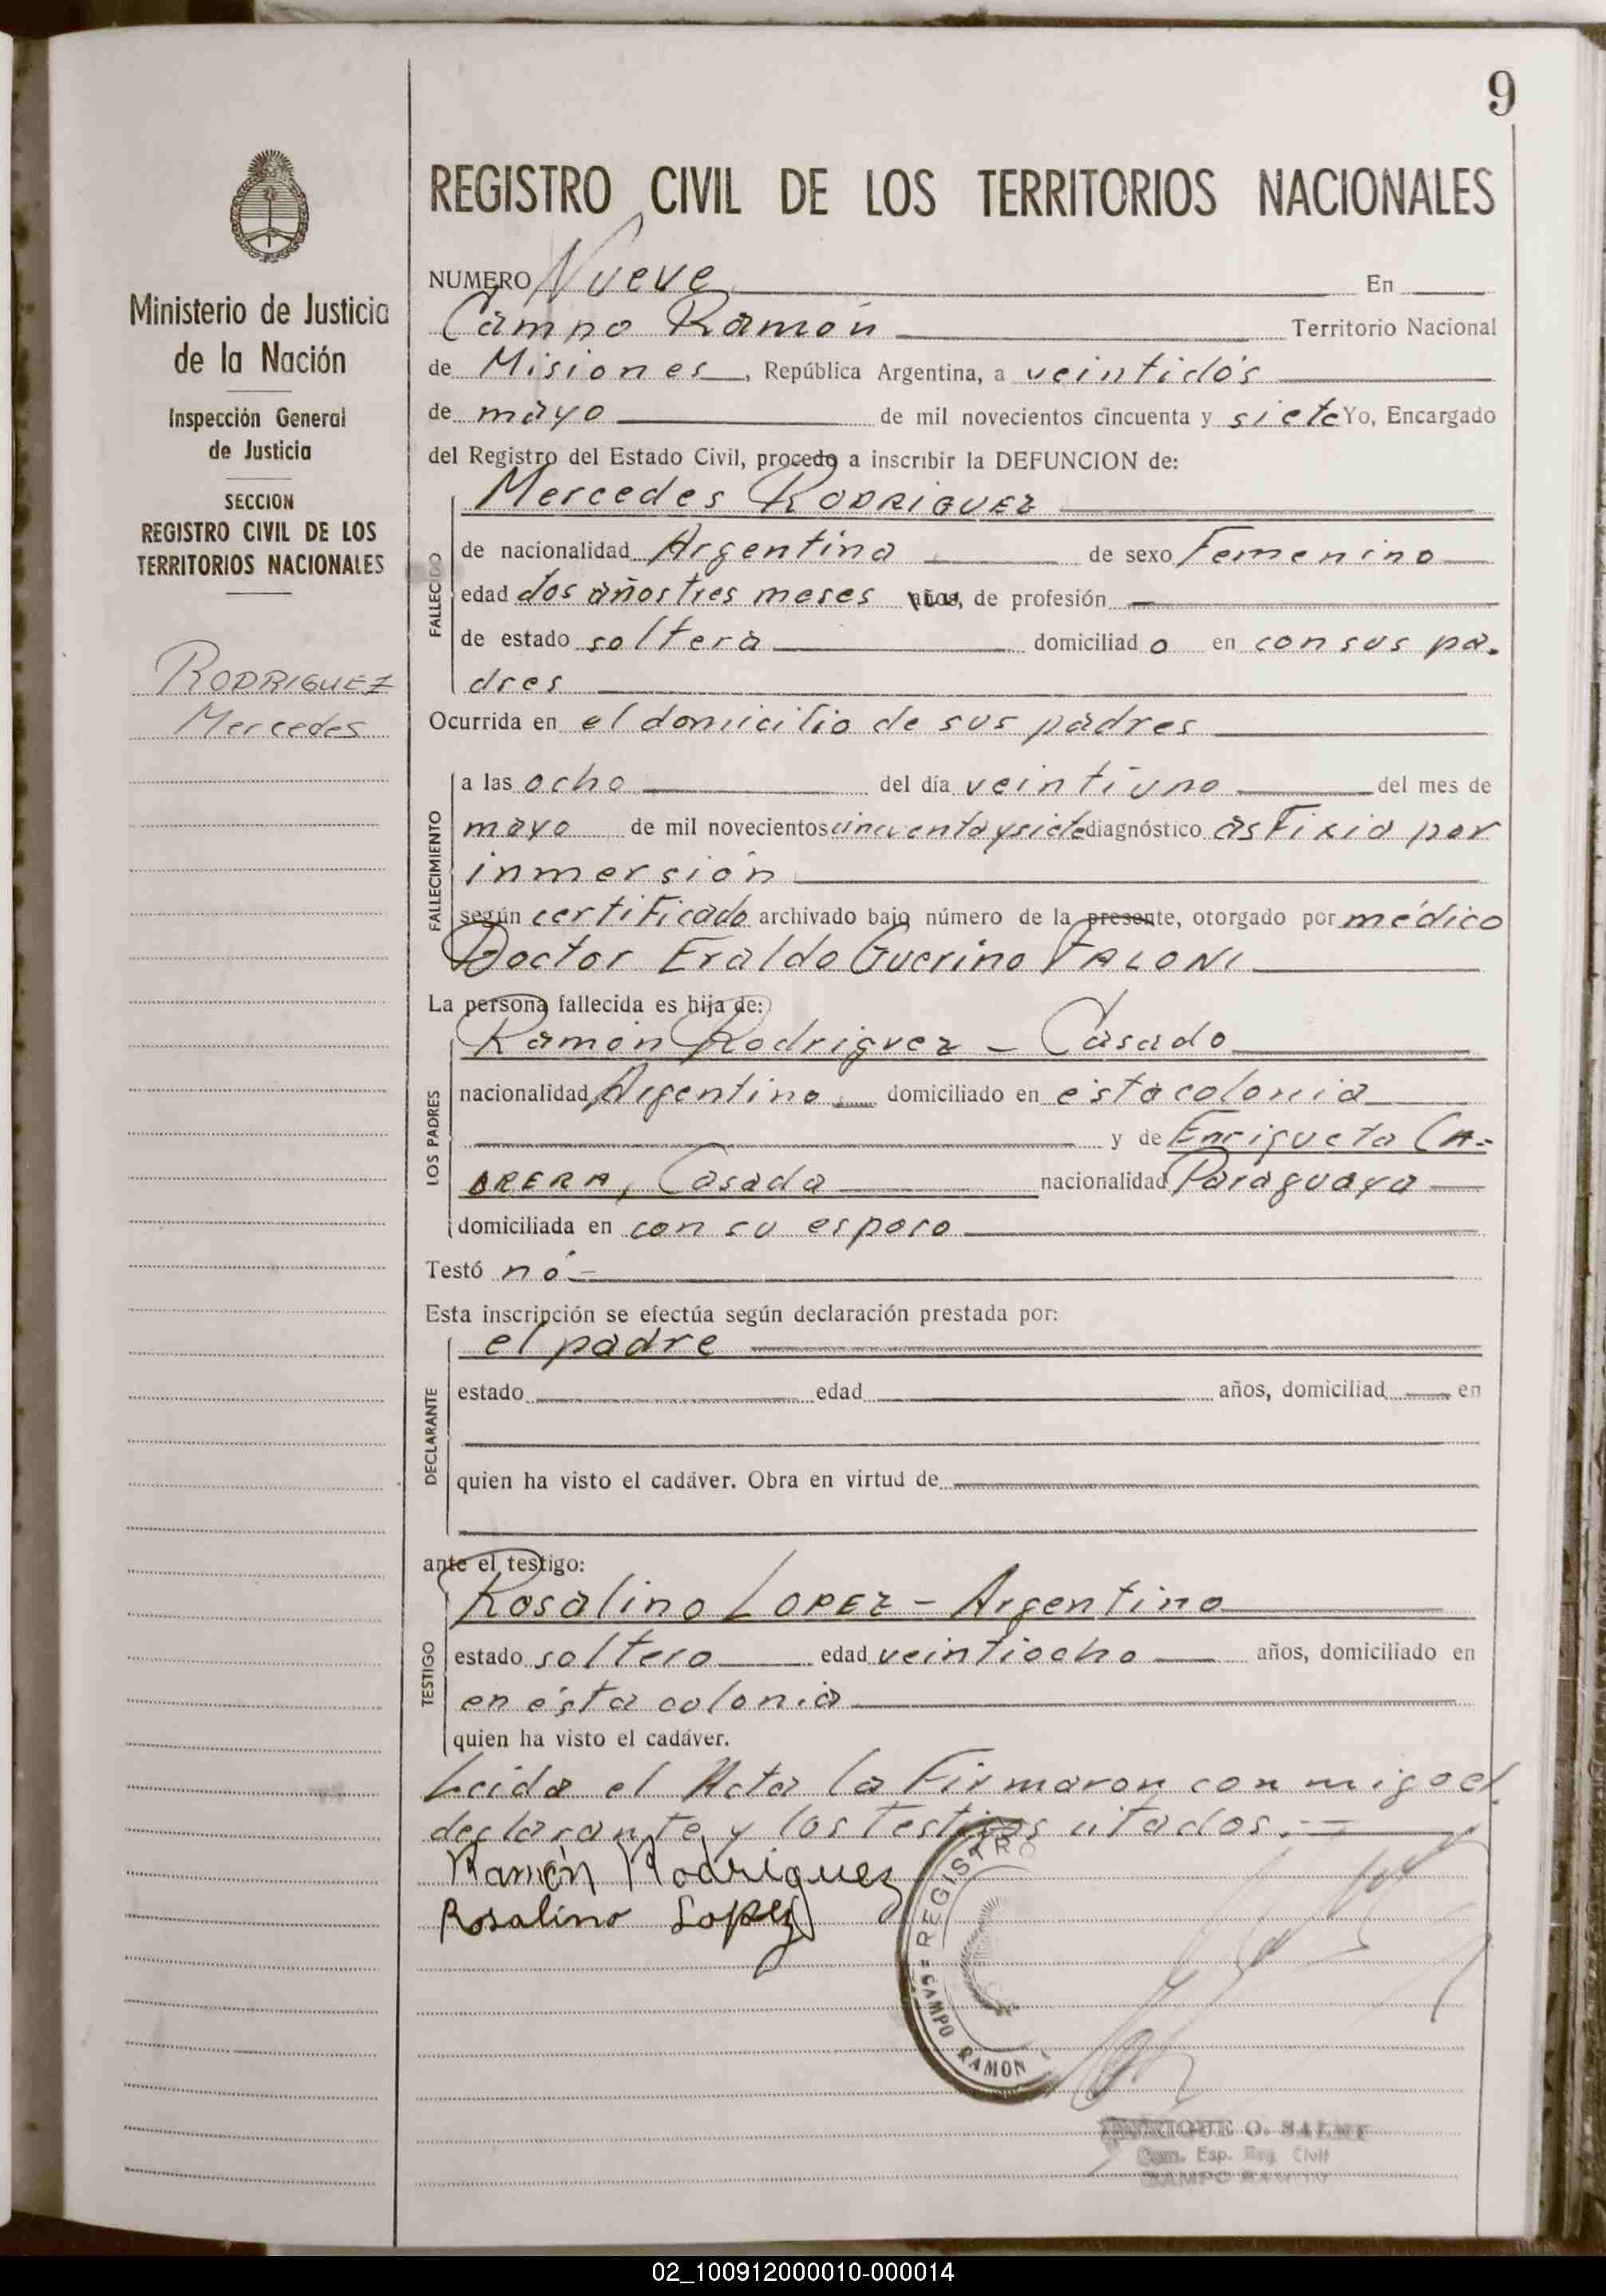 9
REGISTRO CIVIL DE LOS TERRITORIOS NACIONALES
Ministerio de Justicia
de la Nación
Inspección General
de Justicia
SECCION
REGISTRO CIVIL DE LOS
TERRITORIOS NACIONALES
RODRIGUEZ
Mercedes
NUMERO Nueve En
Campo Ramón Territorio Nacional
de Misiones, República Argentina, a veintidós
de mayo de mil novecientos cincuenta y siete Yo, Encargado
del Registro del Estado Civil, procedo a inscribir la DEFUNCION de:
Mercedes RODRIGUEZ
FALLECIDO
de nacionalidad Argentina de sexo Femenino
edad dos años tres meses años, de profesión
de estado soltera domiciliad o en con sus pa-
dres
Ocurrida en el domicilio de sus padres
FALLECIMIENTO
a las ocho del día veintiuno del mes de
mayo de mil novecientos cincuenta y siete diagnóstico asfixia por
inmersión
según certificado archivado bajo número de la presente, otorgado por médico
Doctor Eraldo Guerino FALONI
La persona fallecida es hija de:
LOS PADRES
Ramón Rodriguez - Casado
nacionalidad Argentino domiciliado en ésta colonia
y de Enriqueta CA=
BRERA, Casada nacionalidad Paraguaya
domiciliada en con su esposo
Testó nó -
Esta inscripción se efectúa según declaración prestada por:
DECLARANTE
el padre
estado edad años, domiciliad en
quien ha visto el cadáver. Obra en virtud de
ante el testigo:
TESTIGO
Rosalino LOPEZ - Argentino
estado soltero edad veintiocho años, domiciliado en
en ésta colonia
quien ha visto el cadáver.
Leida el Acta la firmaron con migo el
declarante y los testigos citados.-
Ramón Rodriguez
Rosalino Lopez
REGISTRO
CAMPO RAMON
O.
Com. Esp. Reg. Civil
CAMPO RAMON
02_100912000010-000014